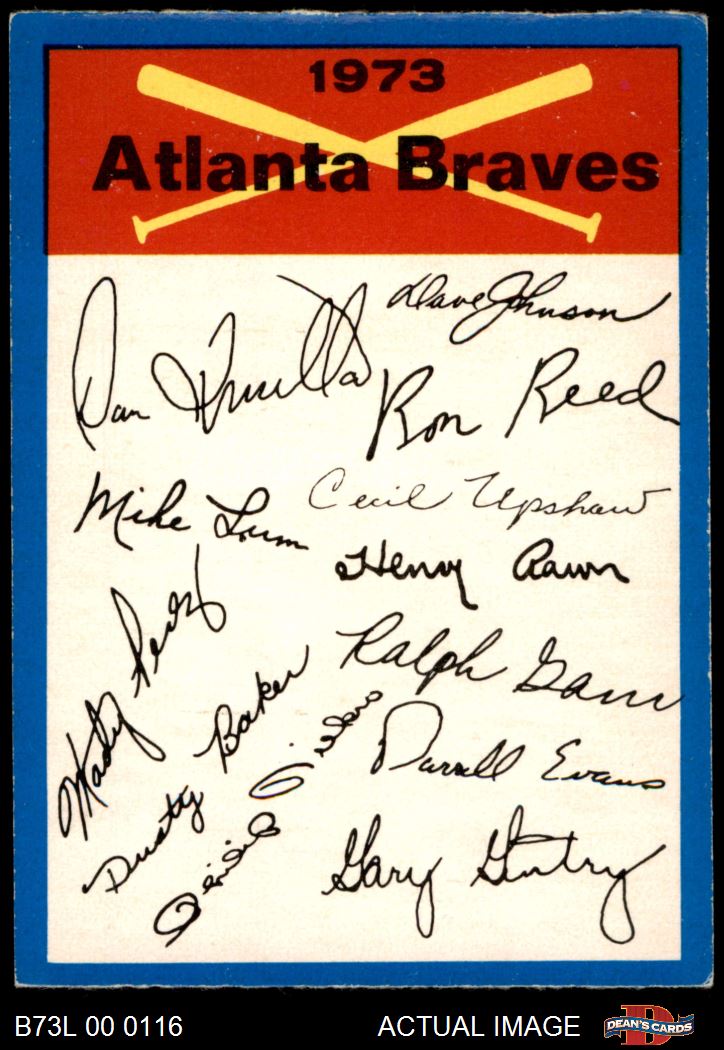 1973
Atlanta Braves
Dave Johnson
Dan Frisella
Ron Reed
Mike Lum
Cecil Upshaw
Henry Aaron
Marty Perez
Ralph Garr
Dusty Baker
Darrell Evans
Gary Gentry
B73L 00 0116
ACTUAL IMAGE
D
DEAN'S CARDS